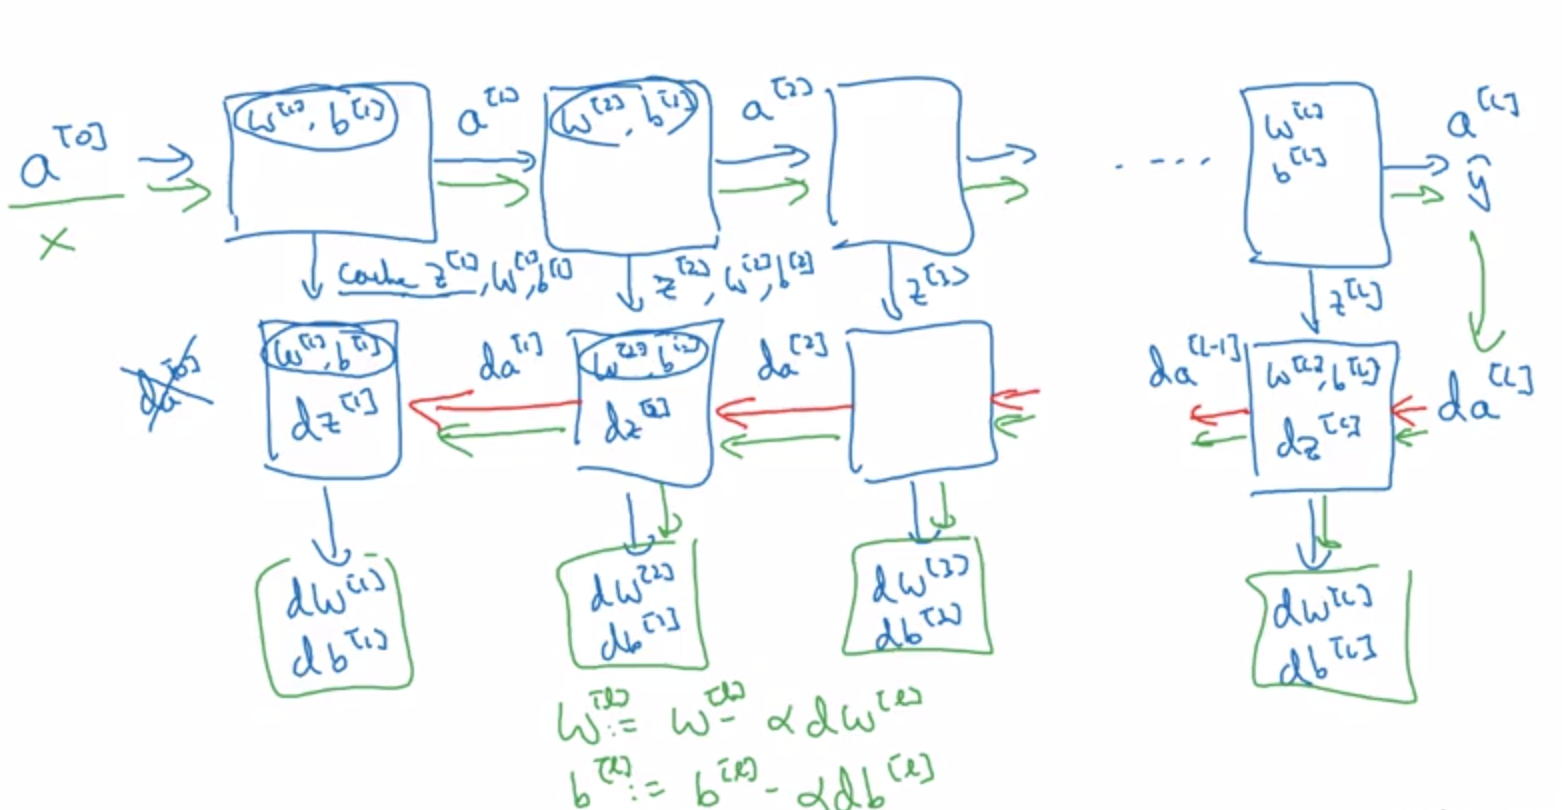 a^[0]
x
w^[1], b^[1]
a^[1]
w^[2], b^[1]
a^[2]
w^[L]
b^[L]
a^[L]
ŷ
cache z^[1], w^[1], b^[1]
z^[2], w^[2], b^[2]
z^[3]
z^[L]
da^[0]
w^[1], b^[1]
dz^[1]
da^[1]
w^[2], b^[2]
dz^[2]
da^[2]
da^[L-1]
w^[L], b^[L]
dz^[L]
da^[L]
dw^[1]
db^[1]
dw^[2]
dw^[3]
dw^[L]
db^[L]
w^[l] := w^[l] - αdw^[l]
b^[l] := b^[l] - αdb^[l]